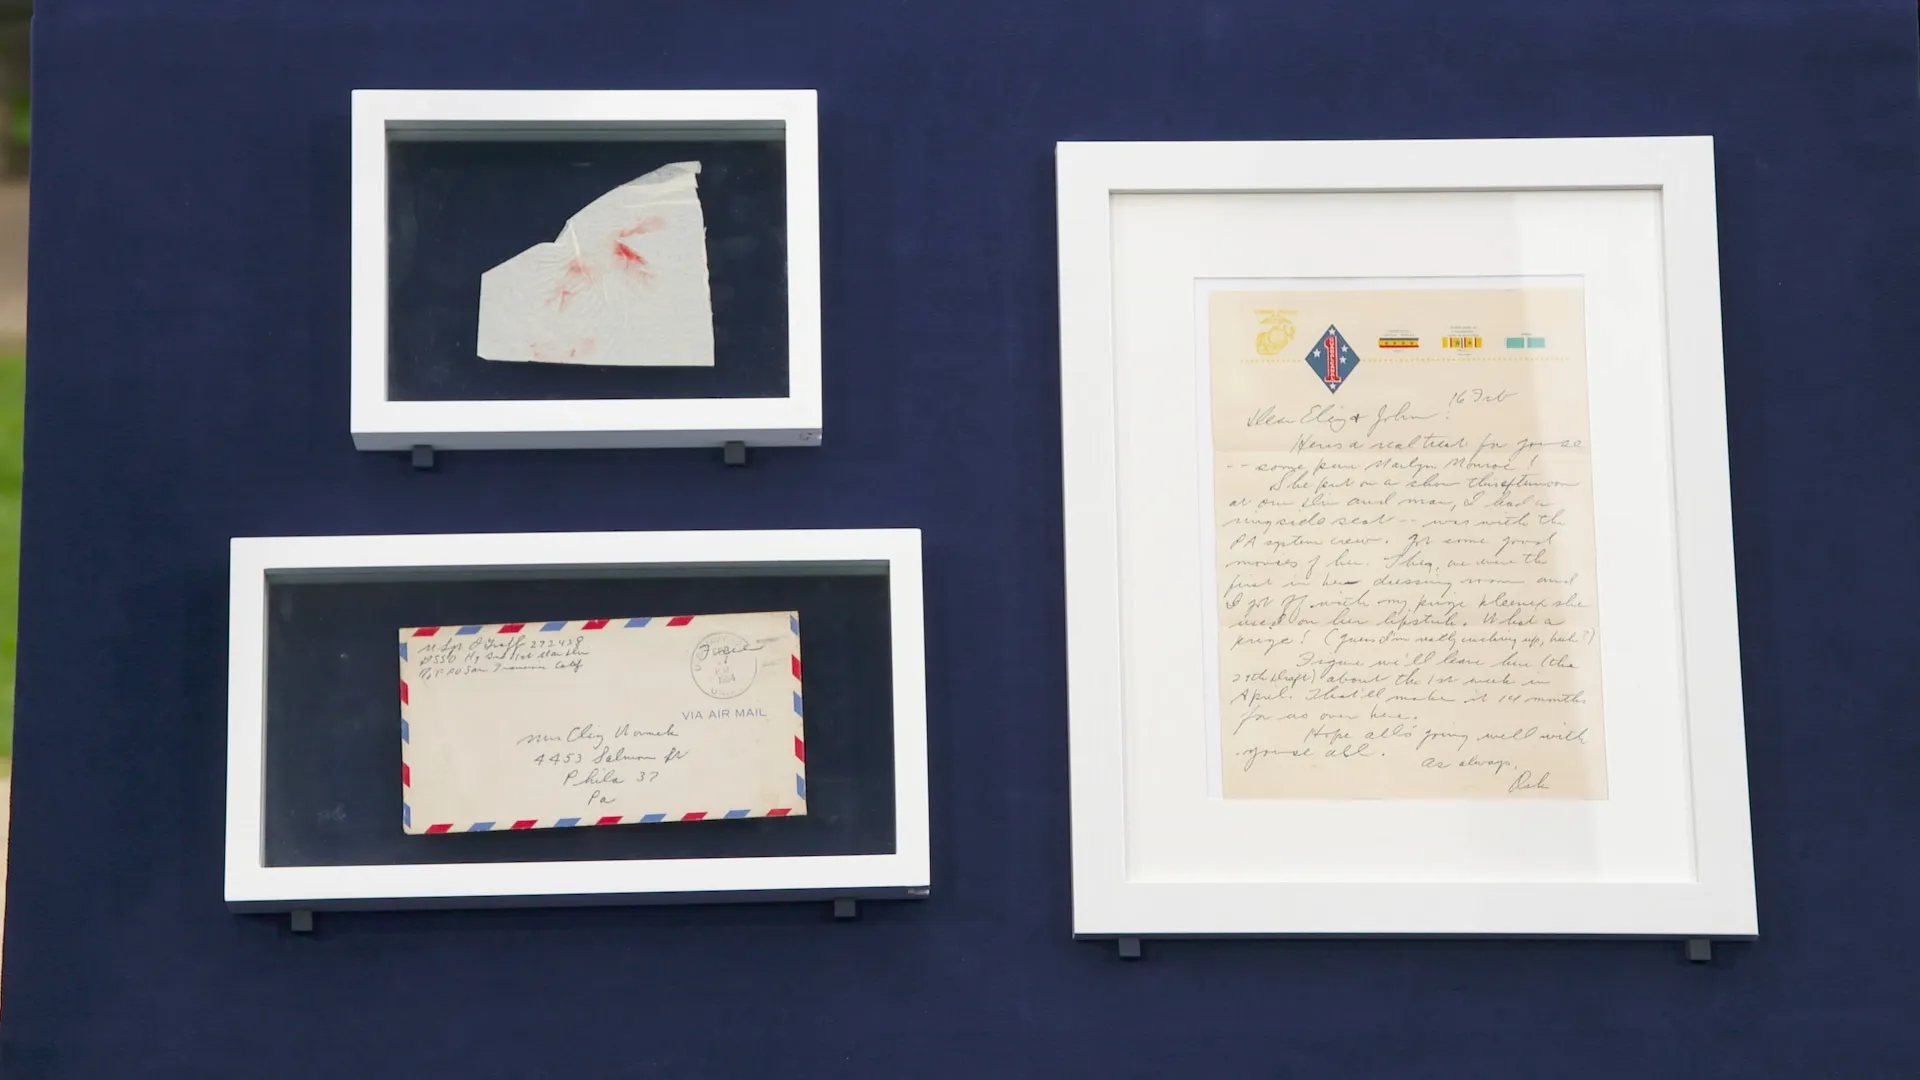 M. Sgt O Graff 272439
Hq 1st Mar Div
San Francisco Calif
Free
1954
VIA AIR MAIL
Mrs
4453 Salmon St
Phila 37
Pa
1
GUADALCANAL
16 Feb
Dear & John!
Here's a real treat for youse
-- some pure Marilyn Monroe!
She put on a show this afternoon
at our Div and man, I had a
ringside seat -- was with the
PA system crew. Got some good
movies of her. Then, we were the
first in her dressing room and
I got off with my prize kleenex she
used on her lipstick. What a
prize! (Guess I'm really cracking up, huh?)
Figure we'll leave here (the
29th Draft) about the 1st week in
April. That'll make it 14 months
for us over here.
Hope all's going well with
youse all.
As always,